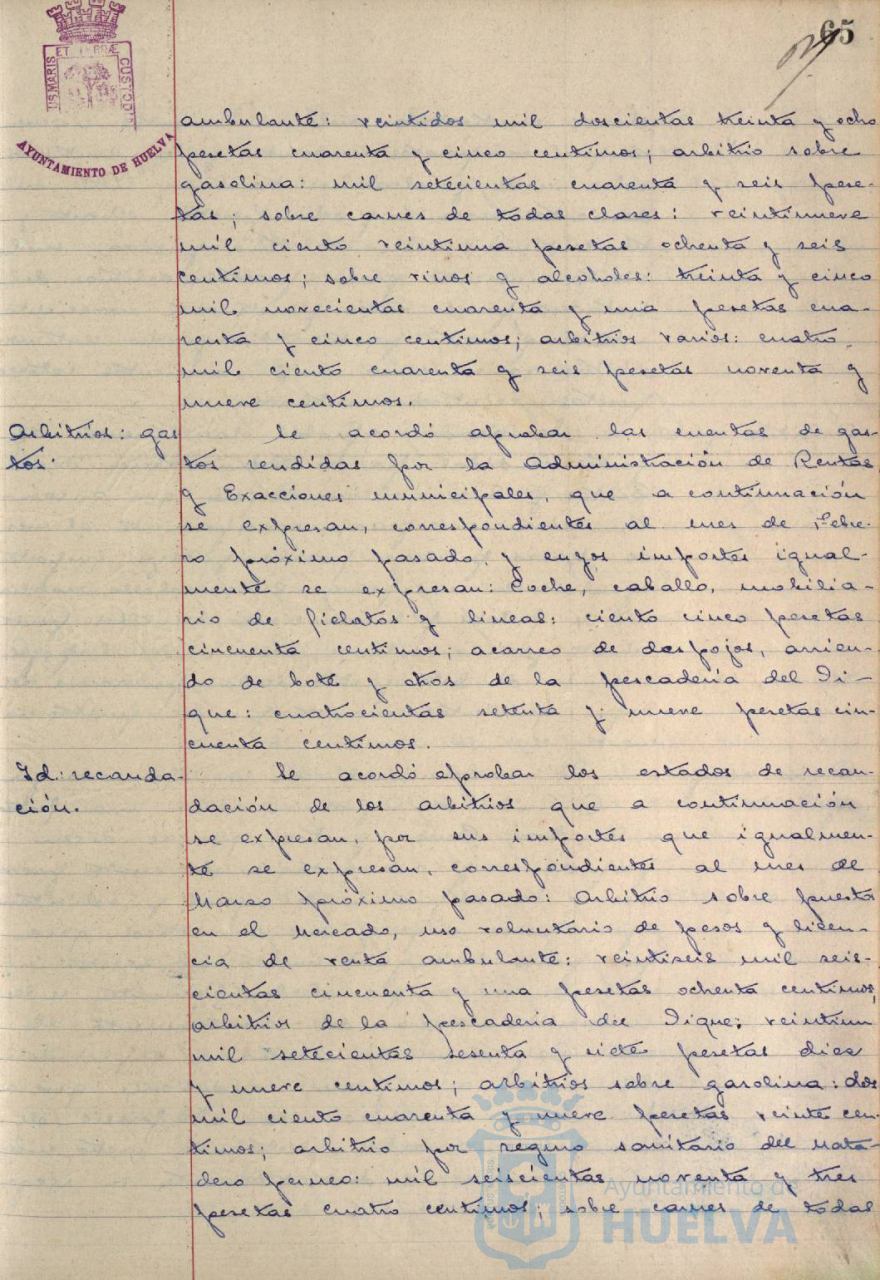 65
US MARIS ET TERRÆ CUSTODI
AYUNTAMIENTO DE HUELVA
ambulante: veintidos mil doscientas treinta y ocho
pesetas cuarenta y cinco centimos; arbitrio sobre
gasolina: mil setecientas cuarenta y seis pese-
tas; sobre carnes de todas clases: veintinueve
mil ciento veintiuna pesetas ochenta y seis
centimos; sobre vinos y alcoholes: treinta y cinco
mil novecientas cuarenta y una pesetas cua-
renta y cinco centimos; arbitrios varios: cuatro
mil ciento cuarenta y seis pesetas noventa y
nueve centimos.
Arbitrios: gas
tos.
Se acordó aprobar las cuentas de gas-
tos rendidas por la Administración de Rentas
y Exacciones municipales, que a continuación
se expresan, correspondientes al mes de Febre-
ro próximo pasado, y cuyos importes igual-
mente se expresan: Coche, caballo, mobilia-
rio de fielatos y lineas: ciento cinco pesetas
cincuenta centimos; acarreo de despojos, arrien-
do de bote y otros de la pescaderia del Di-
que: cuatrocientas setenta y nueve pesetas cin-
cuenta centimos.
Id: recauda-
ción.
Se acordó aprobar los estados de recau-
dación de los arbitrios que a continuación
se expresan, por sus importes que igualmen-
te se expresan, correspondientes al mes de
Marzo próximo pasado: Arbitrio sobre puestos
en el Mercado, uso voluntario de pesos y licen-
cia de venta ambulante: veintiseis mil seis-
cientas cincuenta y una pesetas ochenta centimos;
arbitrios de la pescaderia del Dique; veintiun
mil setecientas sesenta y siete pesetas diez
y nueve centimos; arbitrios sobre gasolina: dos
mil ciento cuarenta y nueve pesetas veinte cen-
timos; arbitrio por regimo sanitario del Mata-
dero porcino: mil seiscientas noventa y tres
pesetas cuatro centimos; sobre carnes de todas
Ayuntamiento de
HUELVA